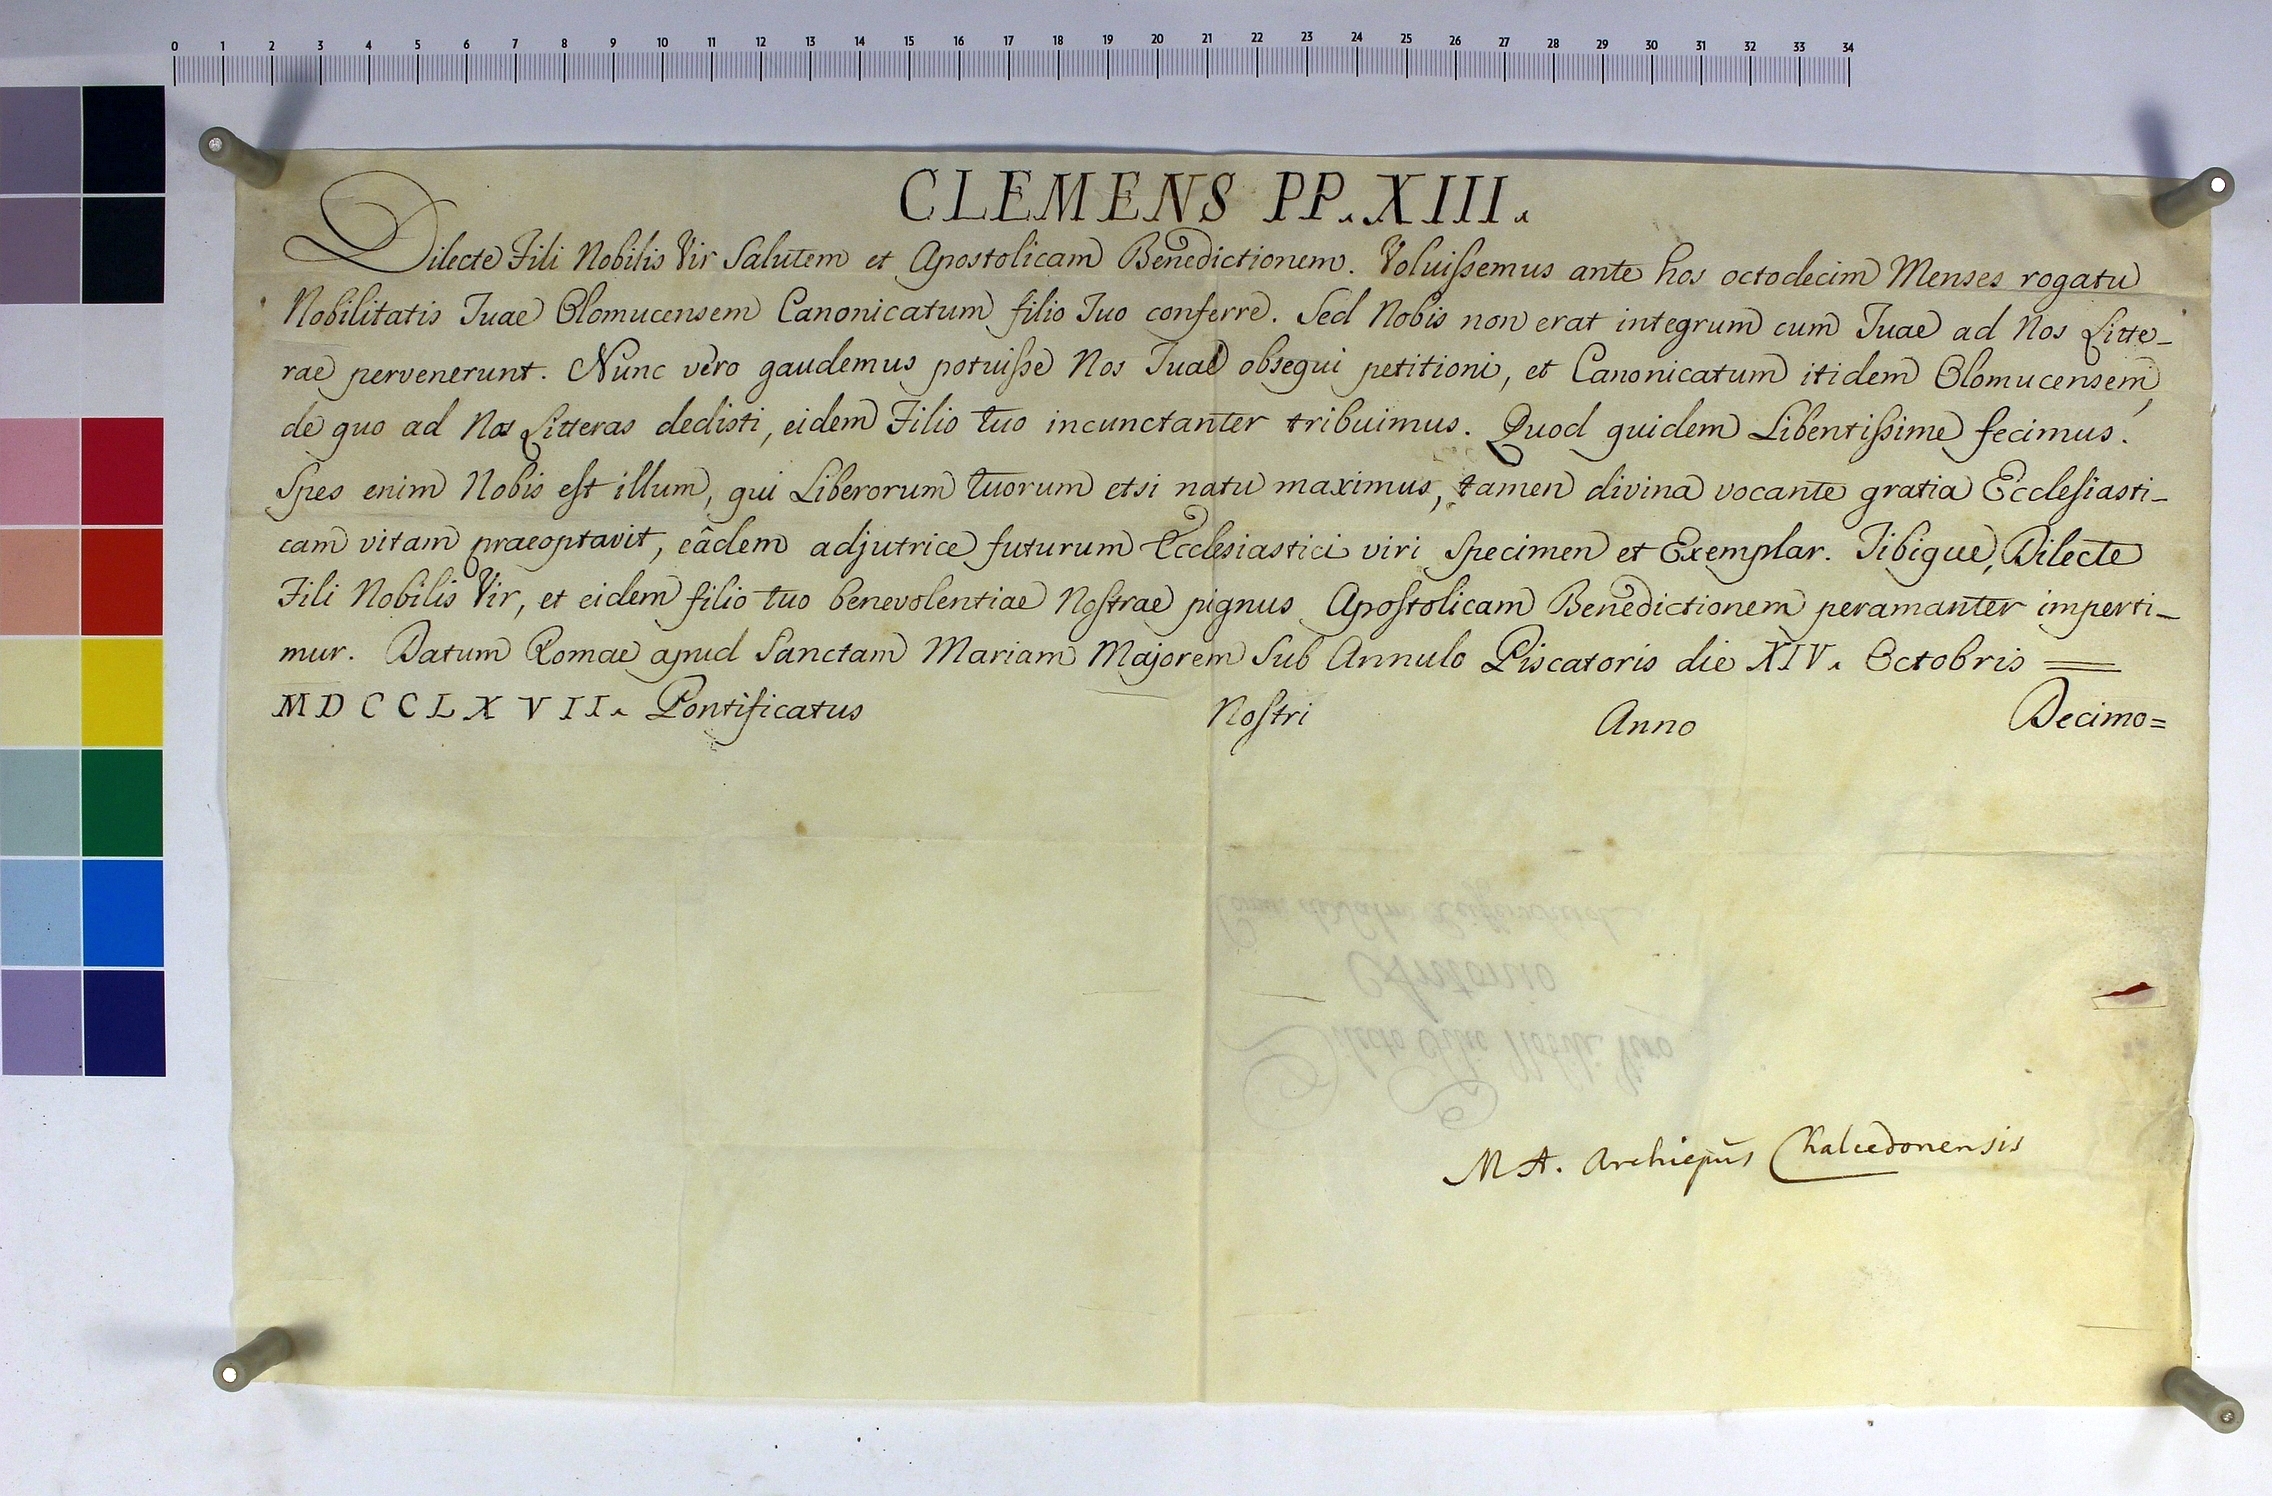 0 1 2 3 4 5 6 7 8 9 10 11 12 13 14 15 16 17 18 19 20 21 22 23 24 25 26 27 28 29 30 31 32 33 34
CLEMENS PP. XIII.
Dilecte Fili Nobilis Vir Salutem et Apostolicam Benedictionem. Voluissemus ante hos octodecim Menses rogatu
Nobilitatis Tuae Olomucensem Canonicatum filio Tuo conferre. Sed Nobis non erat integrum cum Tuae ad Nos Litte-
rae pervenerunt. Nunc vero gaudemus potuisse Nos Tuae obsequi petitioni, et Canonicatum itidem Olomucensem,
de quo ad Nos Litteras dedisti, eidem Filio tuo incunctanter tribuimus. Quod quidem Libentissime fecimus.
Spes enim Nobis est illum, qui Liberorum tuorum etsi natu maximus, tamen divina vocante gratia Ecclesiasti-
cam vitam praeoptavit, eâdem adjutrice futurum Ecclesiastici viri Specimen et Exemplar. Tibique, Dilecte
Fili Nobilis Vir, et eidem filio tuo benevolentiae Nostrae pignus Apostolicam Benedictionem peramanter imperti-
mur. Datum Romae apud Sanctam Mariam Majorem Sub Annulo Piscatoris die XIV. Octobris =
MDCCLXVII. Pontificatus Nostri Anno Decimo=
Dilecto Filio Nobili Viro
Antonio
M A. Archiepũs Chalcedonensis